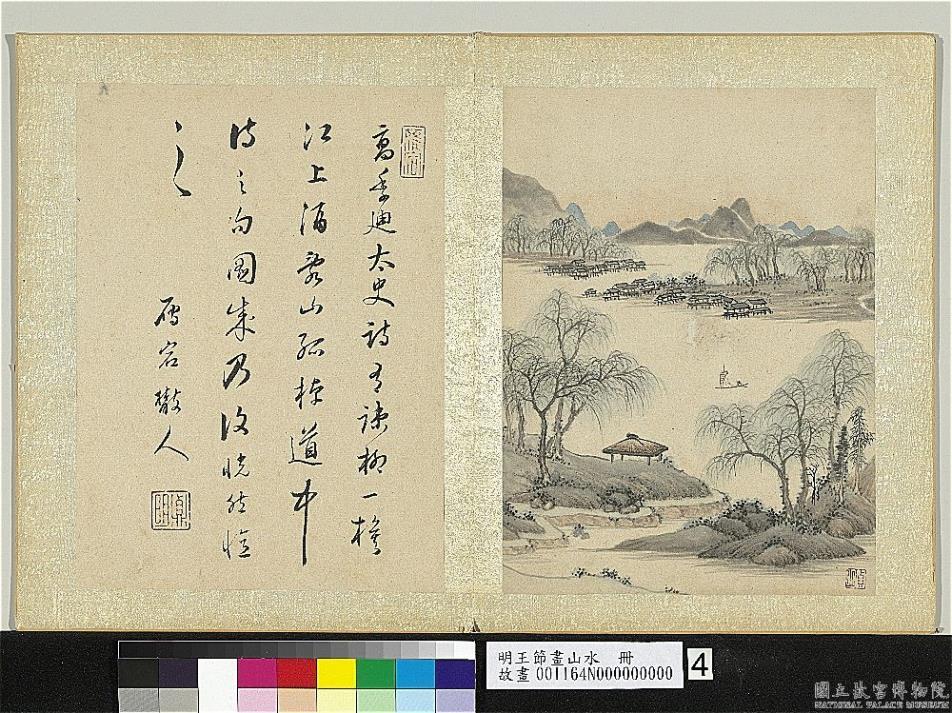 高季迪太史詩有疎柳一旗
江上酒亂山孤棹道中
詩之句圖成乃復恍然憶
之
宕散人
明王節畫山水 冊
故畫 001164N000000000
4
國立故宮博物院
NATIONAL PALACE MUSEUM